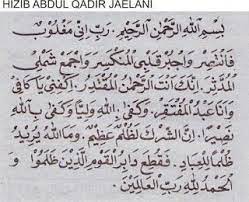 HIZIB ABDUL QADIR JAELANI
بِسْمِ اللهِ الرَّحْمٰنِ الرَّحِيْمِ. رَبِّ اِنِّيْ مَغْلُوْبٌ
فَانْتَصِرْ وَاجْبُرْ قَلْبِيَ الْمُنْكَسِرَ وَاجْمَعْ شَمْلِيَ
الْمُدَّثِرَ. اِنَّكَ اَنْتَ الرَّحْمٰنُ الْمُقْتَدِرُ. اِكْفِنِيْ يَا كَافِيْ
وَاَنَا عَبْدُ الْمُفْتَقِرُ. وَكَفٰى بِاللهِ وَلِيًّا وَكَفٰى بِاللهِ
نَصِيْرًا. اِنَّ الشِّرْكَ لَظُلْمٌ عَظِيْمٌ. وَمَا اللهُ يُرِيْدُ
ظُلْمًا لِلْعِبَادِ. فَقُطِعَ دَابِرُ الْقَوْمِ الَّذِيْنَ ظَلَمُوْا وَ
الْحَمْدُ لِلّٰهِ رَبِّ الْعَالَمِيْنَ.